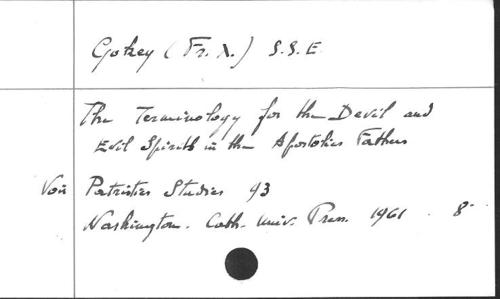 Gokey (Fr. X.) S.S.E
The Terminology for the Devil and
Evil Spirits in the Apostolic Fathers
Voir Patristic Studies 93
Washington. Cath. Univ. Press. 1961. 8°